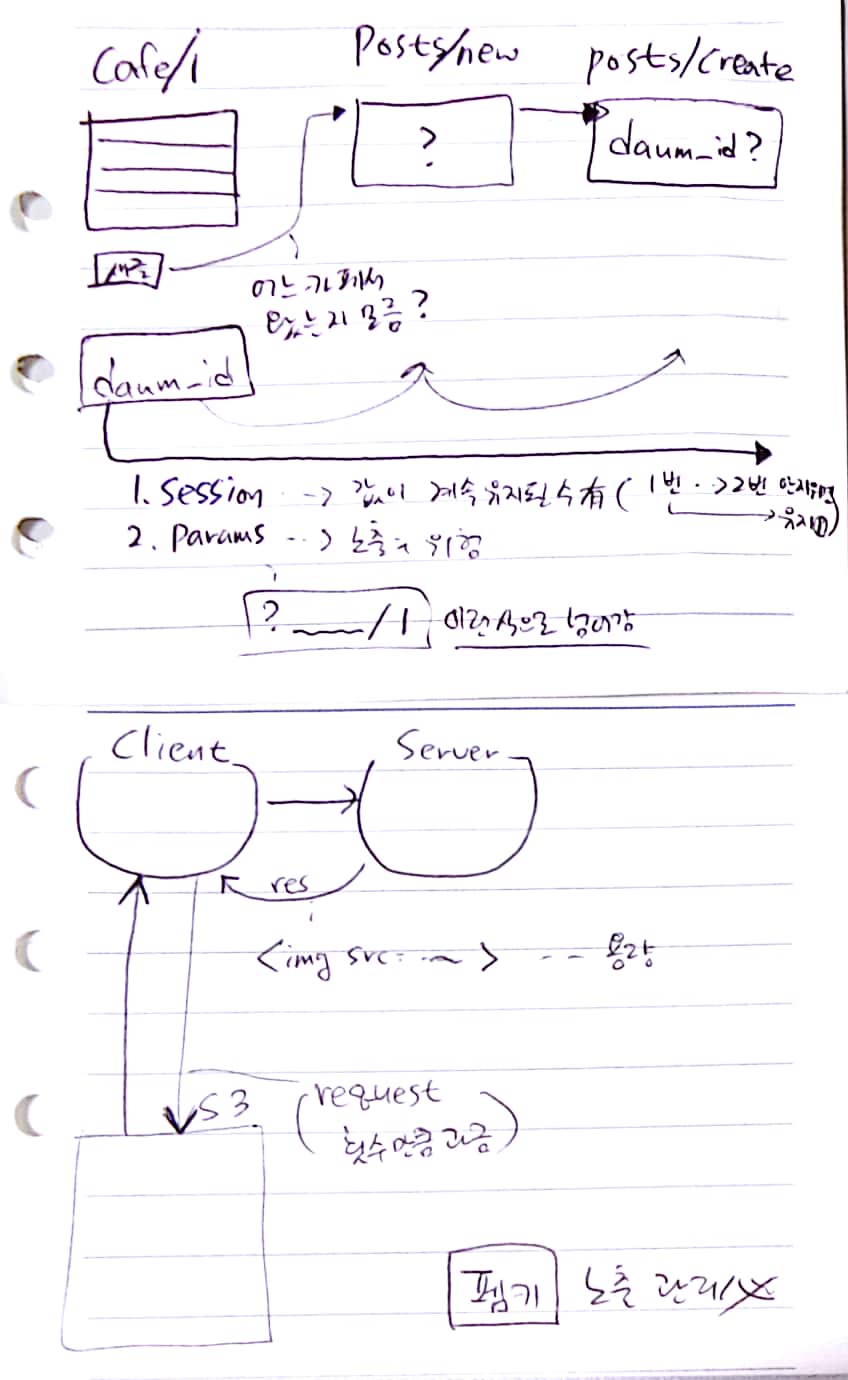 Cafe/1
Posts/new
posts/create
?
daum_id?
새글
어느 카페에서
왔는지 모름?
daum_id
1. Session --> 값이 계속 유지될 수 有 ( 1번 --> 2번 안지우면
유지 )
2. Params --> 노출의 위험
? /1 이런식으로 넘어감
Client
Server
res
<img src= ~> -- 용량
S3
(request
횟수만큼 과금)
펨키 노출 관리